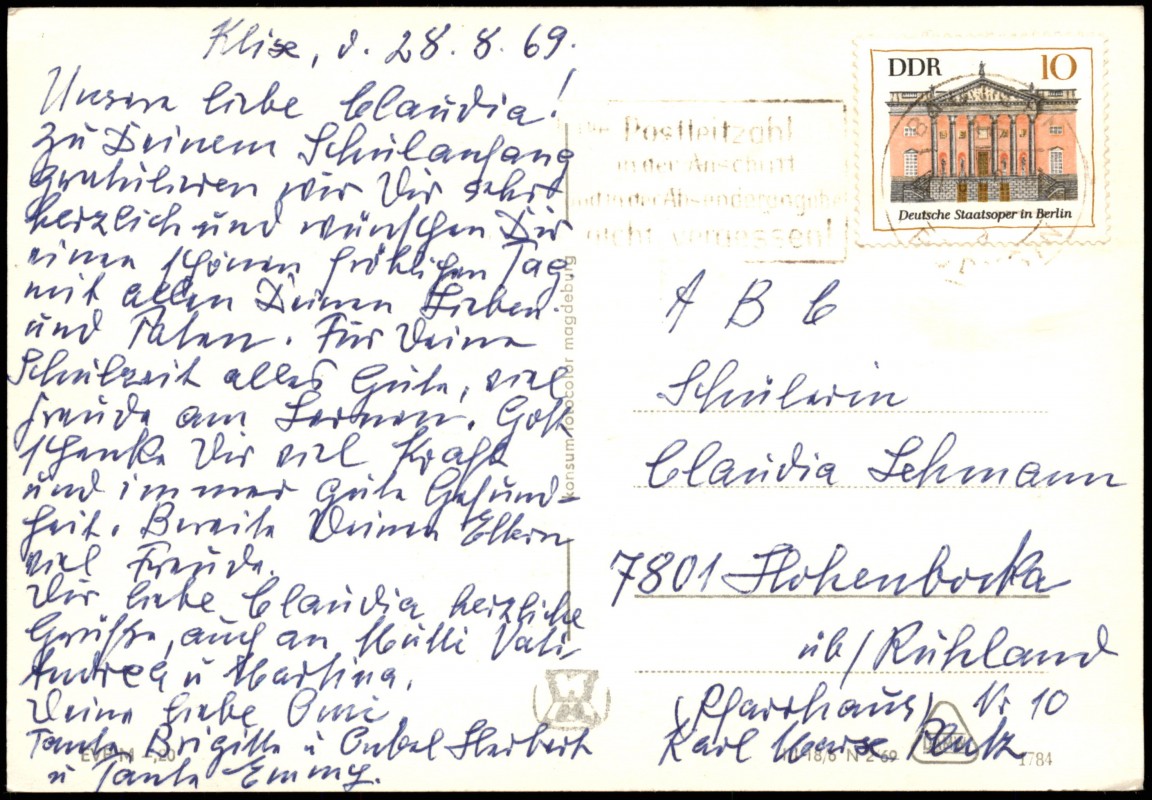 Klixe, d. 28.8.69.
Unsere liebe Claudia!
Zu Deinem Schulanfang
gratulieren wir Dir sehr
herzlich und wünschen Dir
einen schönen fröhlichen Tag,
mit allen Deinen Lieben
und Paten. Für Deine
Schulzeit alles Gute, viel
Freude am Lernen. Gott
schenke Dir viel Kraft
und immer gute Gesund-
heit. Bereite Deinen Eltern
viel Freude.
Dir liebe Claudia herzliche
Grüße, auch an Mutti Vati
Andrea u Martina.
Deine liebe Omi,
Tante Brigitte u Onkel Herbert
u Tante Emmy.
EVP M -,20
konsum fotocolor magdeburg
Postleitzahl
in der Anschrift
und in der Absenderangabe
nicht vergessen!
DDR 10
Deutsche Staatsoper in Berlin
A B C
Schülerin
Claudia Lehmann
7801 Hohenbocka
üb/Ruhland
(Pfarrhaus) Nr 10
Karl Marx Platz
18/6 N 2 69
1784